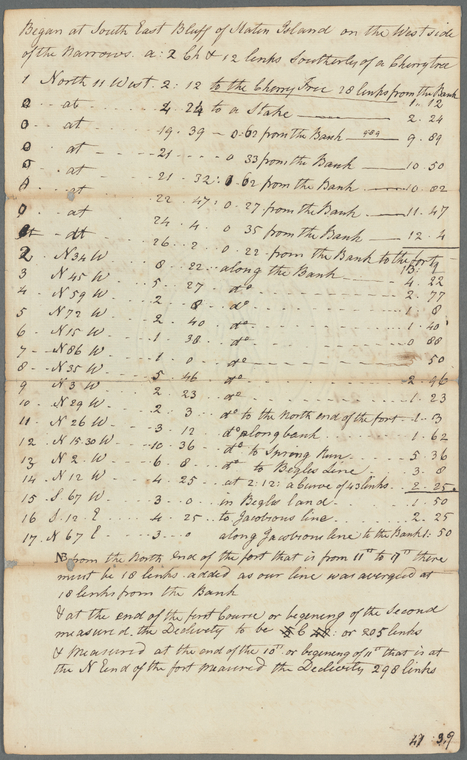 Began at South East Bluff of Staten Island on the West side
of the Narrows a: 2 Ch & 12 links Southerly of a Cherry tree
1 North 11 West. 2: 12 to the Cherry Tree 18 links from the Bank 1. 12
0 .. at 4 24 to a Stake 2. 24
0 .. at 19. 39 - 0.62 from the Bank 9. 89
0 .. at 21 0 33 from the Bank 10. 50
0 .. at 21 32: 1.62 from the Bank 10. 82
0 .. at 22 47: 0.27 from the Bank 11. 47
0 .. at 24 4. 0 35 from the Bank 12. 4
dt 26. 2. 0. 22. from the Bank to the fort 13. 1
2. N 34 W 8 22 along the Bank 4. 22
3 N 45 W 5 27 do 2. 77
4 N 59 W 2 8 do 1. 8
5 N 72 W 2 40 do 1. 40
6 N 15 W 1 38 do 0 88
7 N 86 W 1 0 do 50
8 N 35 W 5 46 do 2. 96
9 N 3 W 2 23 do 1. 23
10 N 29 W 2 3 do to the North end of the fort 1. 3
11 N 26 W 3 12 do along bank 1. 62
12 N 15.30 W 10 36 do to Sprong Run 5 36
13 N 2 W 6 8 do to Begles Line 3. 8
14 N 12 W 4 25 at 2: 12: a Curve of 43 links 2. 25
15 S 67 W 3 0 in Begles land 1. 50
16 S. 12. E 4 25 to Jacobsons line 2. 25
17. N 67 E 3. 0 along Jacobsons line to the Bank 1: 50
NB from the North End of the fort that is from 11th to 17th there
must be 18 links added as our line was averged at
18 links from the Bank
& at the end of the first Course or begening of the Second
measured the Declevity to be 6 or 205 links
& Measured at the end of the 10th or begening of 11th that is at
the N End of the fort measured the Declevity 298 links
39